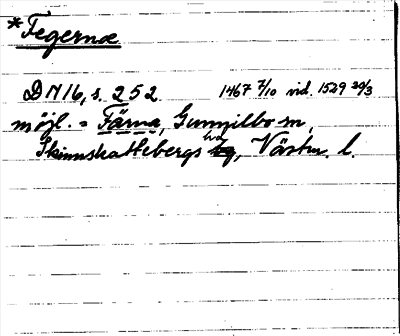 *Fegernæ
DN 16, s. 252 1467 7/10 vid. 1529 20/3
möjl. = Färna, Gunnilbo sn,
Skinnskattebergs hd, Västm. l.